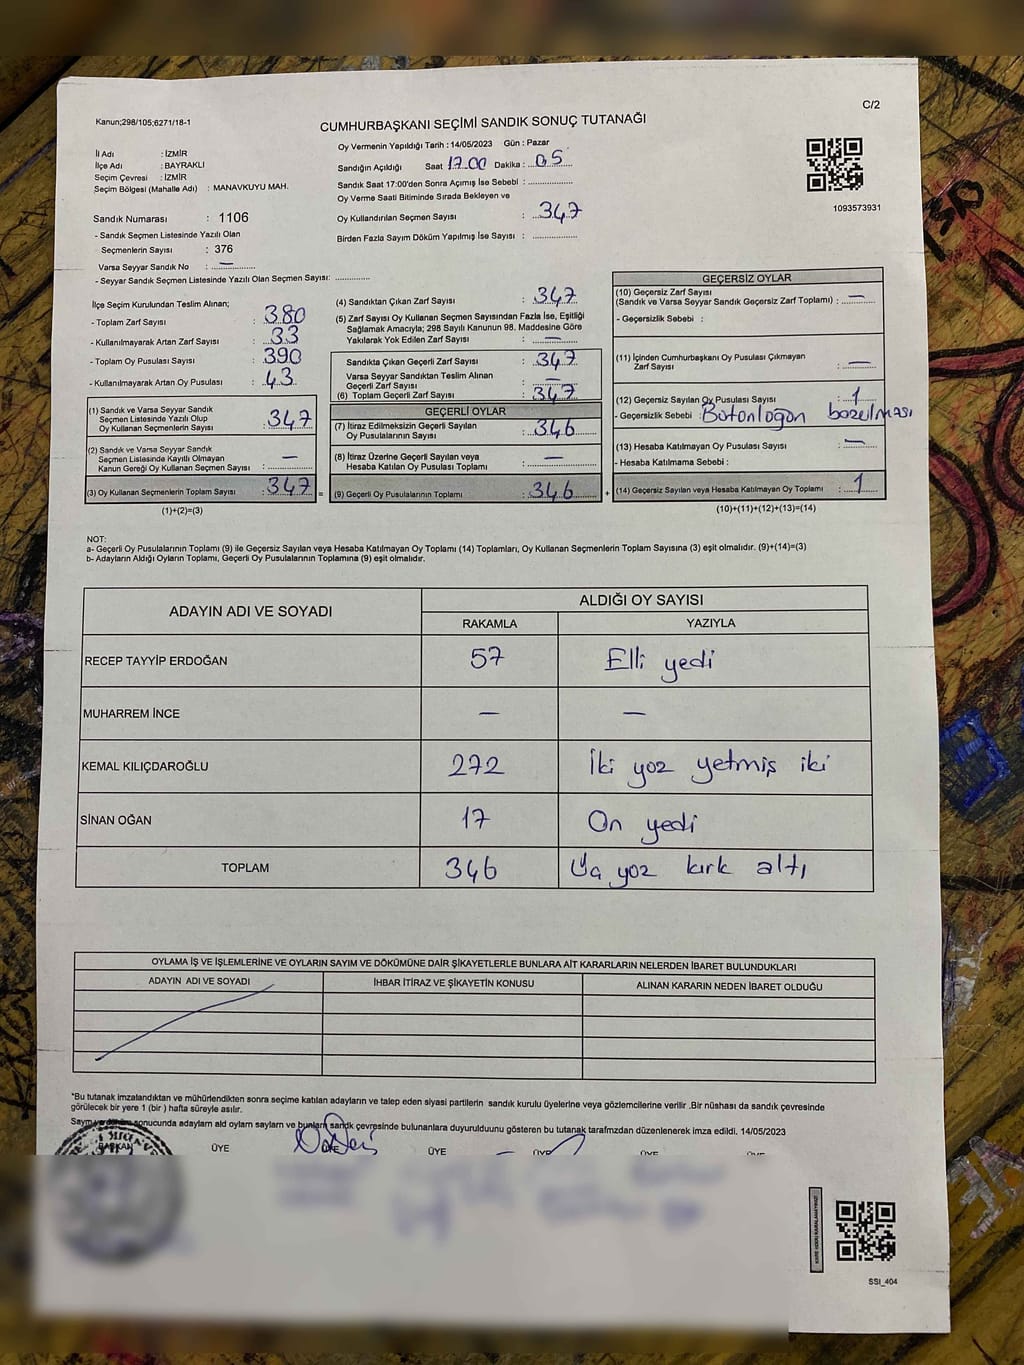 C/2
Kanun;298/105;6271/18-1
CUMHURBAŞKANI SEÇİMİ SANDIK SONUÇ TUTANAĞI
İl Adı : İZMİR
İlçe Adı : BAYRAKLI
Seçim Çevresi : İZMİR
Seçim Bölgesi (Mahalle Adı) : MANAVKUYU MAH.
Sandık Numarası : 1106
- Sandık Seçmen Listesinde Yazılı Olan
Seçmenlerin Sayısı : 376
Varsa Seyyar Sandık No : —
- Seyyar Sandık Seçmen Listesinde Yazılı Olan Seçmen Sayısı: ..................
Oy Vermenin Yapıldığı Tarih : 14/05/2023 Gün : Pazar
Sandığın Açıldığı Saat 17.00 Dakika : 05
Sandık Saat 17:00'den Sonra Açımış İse Sebebi : ..................
Oy Verme Saati Bitiminde Sırada Bekleyen ve
Oy Kullandırılan Seçmen Sayısı : 347
Birden Fazla Sayım Döküm Yapılmış İse Sayısı : ..................
1093573931
İlçe Seçim Kurulundan Teslim Alınan;
- Toplam Zarf Sayısı : 380
- Kullanılmayarak Artan Zarf Sayısı : 33
- Toplam Oy Pusulası Sayısı : 390
- Kullanılmayarak Artan Oy Pusulası : 43
(1) Sandık ve Varsa Seyyar Sandık
Seçmen Listesinde Yazılı Olup
Oy Kullanan Seçmenlerin Sayısı : 347
(2) Sandık ve Varsa Seyyar Sandık
Seçmen Listesinde Kayıtlı Olmayan
Kanun Gereği Oy Kullanan Seçmen Sayısı : —
(3) Oy Kullanan Seçmenlerin Toplam Sayısı : 347 =
(1)+(2)=(3)
(4) Sandıktan Çıkan Zarf Sayısı : 347
(5) Zarf Sayısı Oy Kullanan Seçmen Sayısından Fazla İse, Eşitliği
Sağlamak Amacıyla; 298 Sayılı Kanunun 98. Maddesine Göre
Yakılarak Yok Edilen Zarf Sayısı : —
Sandıkta Çıkan Geçerli Zarf Sayısı : 347
Varsa Seyyar Sandıktan Teslim Alınan
Geçerli Zarf Sayısı : —
(6) Toplam Geçerli Zarf Sayısı : 347
GEÇERLİ OYLAR
(7) İtiraz Edilmeksizin Geçerli Sayılan
Oy Pusulalarının Sayısı : 346
(8) İtiraz Üzerine Geçerli Sayılan veya
Hesaba Katılan Oy Pusulası Toplamı : —
(9) Geçerli Oy Pusulalarının Toplamı : 346 +
GEÇERSİZ OYLAR
(10) Geçersiz Zarf Sayısı
(Sandık ve Varsa Seyyar Sandık Geçersiz Zarf Toplamı) : —
- Geçersizlik Sebebi :
(11) İçinden Cumhurbaşkanı Oy Pusulası Çıkmayan
Zarf Sayısı : —
(12) Geçersiz Sayılan Oy Pusulası Sayısı : 1
- Geçersizlik Sebebi : Bütünlüğün bozulması
(13) Hesaba Katılmayan Oy Pusulası Sayısı : —
- Hesaba Katılmama Sebebi :
(14) Geçersiz Sayılan veya Hesaba Katılmayan Oy Toplamı : 1
(10)+(11)+(12)+(13)=(14)
NOT:
a- Geçerli Oy Pusulalarının Toplamı (9) ile Geçersiz Sayılan veya Hesaba Katılmayan Oy Toplamı (14) Toplamları, Oy Kullanan Seçmenlerin Toplam Sayısına (3) eşit olmalıdır. (9)+(14)=(3)
b- Adayların Aldığı Oyların Toplamı, Geçerli Oy Pusulalarının Toplamına (9) eşit olmalıdır.
ADAYIN ADI VE SOYADI
ALDIĞI OY SAYISI
RAKAMLA YAZIYLA
RECEP TAYYİP ERDOĞAN 57 Elli yedi
MUHARREM İNCE — —
KEMAL KILIÇDAROĞLU 272 İki yüz yetmiş iki
SİNAN OĞAN 17 On yedi
TOPLAM 346 Üç yüz kırk altı
OYLAMA İŞ VE İŞLEMLERİNE VE OYLARIN SAYIM VE DÖKÜMÜNE DAİR ŞİKAYETLERLE BUNLARA AİT KARARLARIN NELERDEN İBARET BULUNDUKLARI
ADAYIN ADI VE SOYADI İHBAR İTİRAZ VE ŞİKAYETİN KONUSU ALINAN KARARIN NEDEN İBARET OLDUĞU
*Bu tutanak imzalandıktan ve mühürlendikten sonra seçime katılan adayların ve talep eden siyasi partilerin sandık kurulu üyelerine veya gözlemcilerine verilir .Bir nüshası da sandık çevresinde
görülecek bir yere 1 (bir ) hafta süreyle asılır.
sonucunda adayların ald oyların sayları ve bunların sandk çevresinde bulunanlara duyurulduunu gösteren bu tutanak tarafmzdan düzenlenerek imza edildi. 14/05/2023
BAŞKAN ÜYE ÜYE ÜYE ÜYE
SSI_404